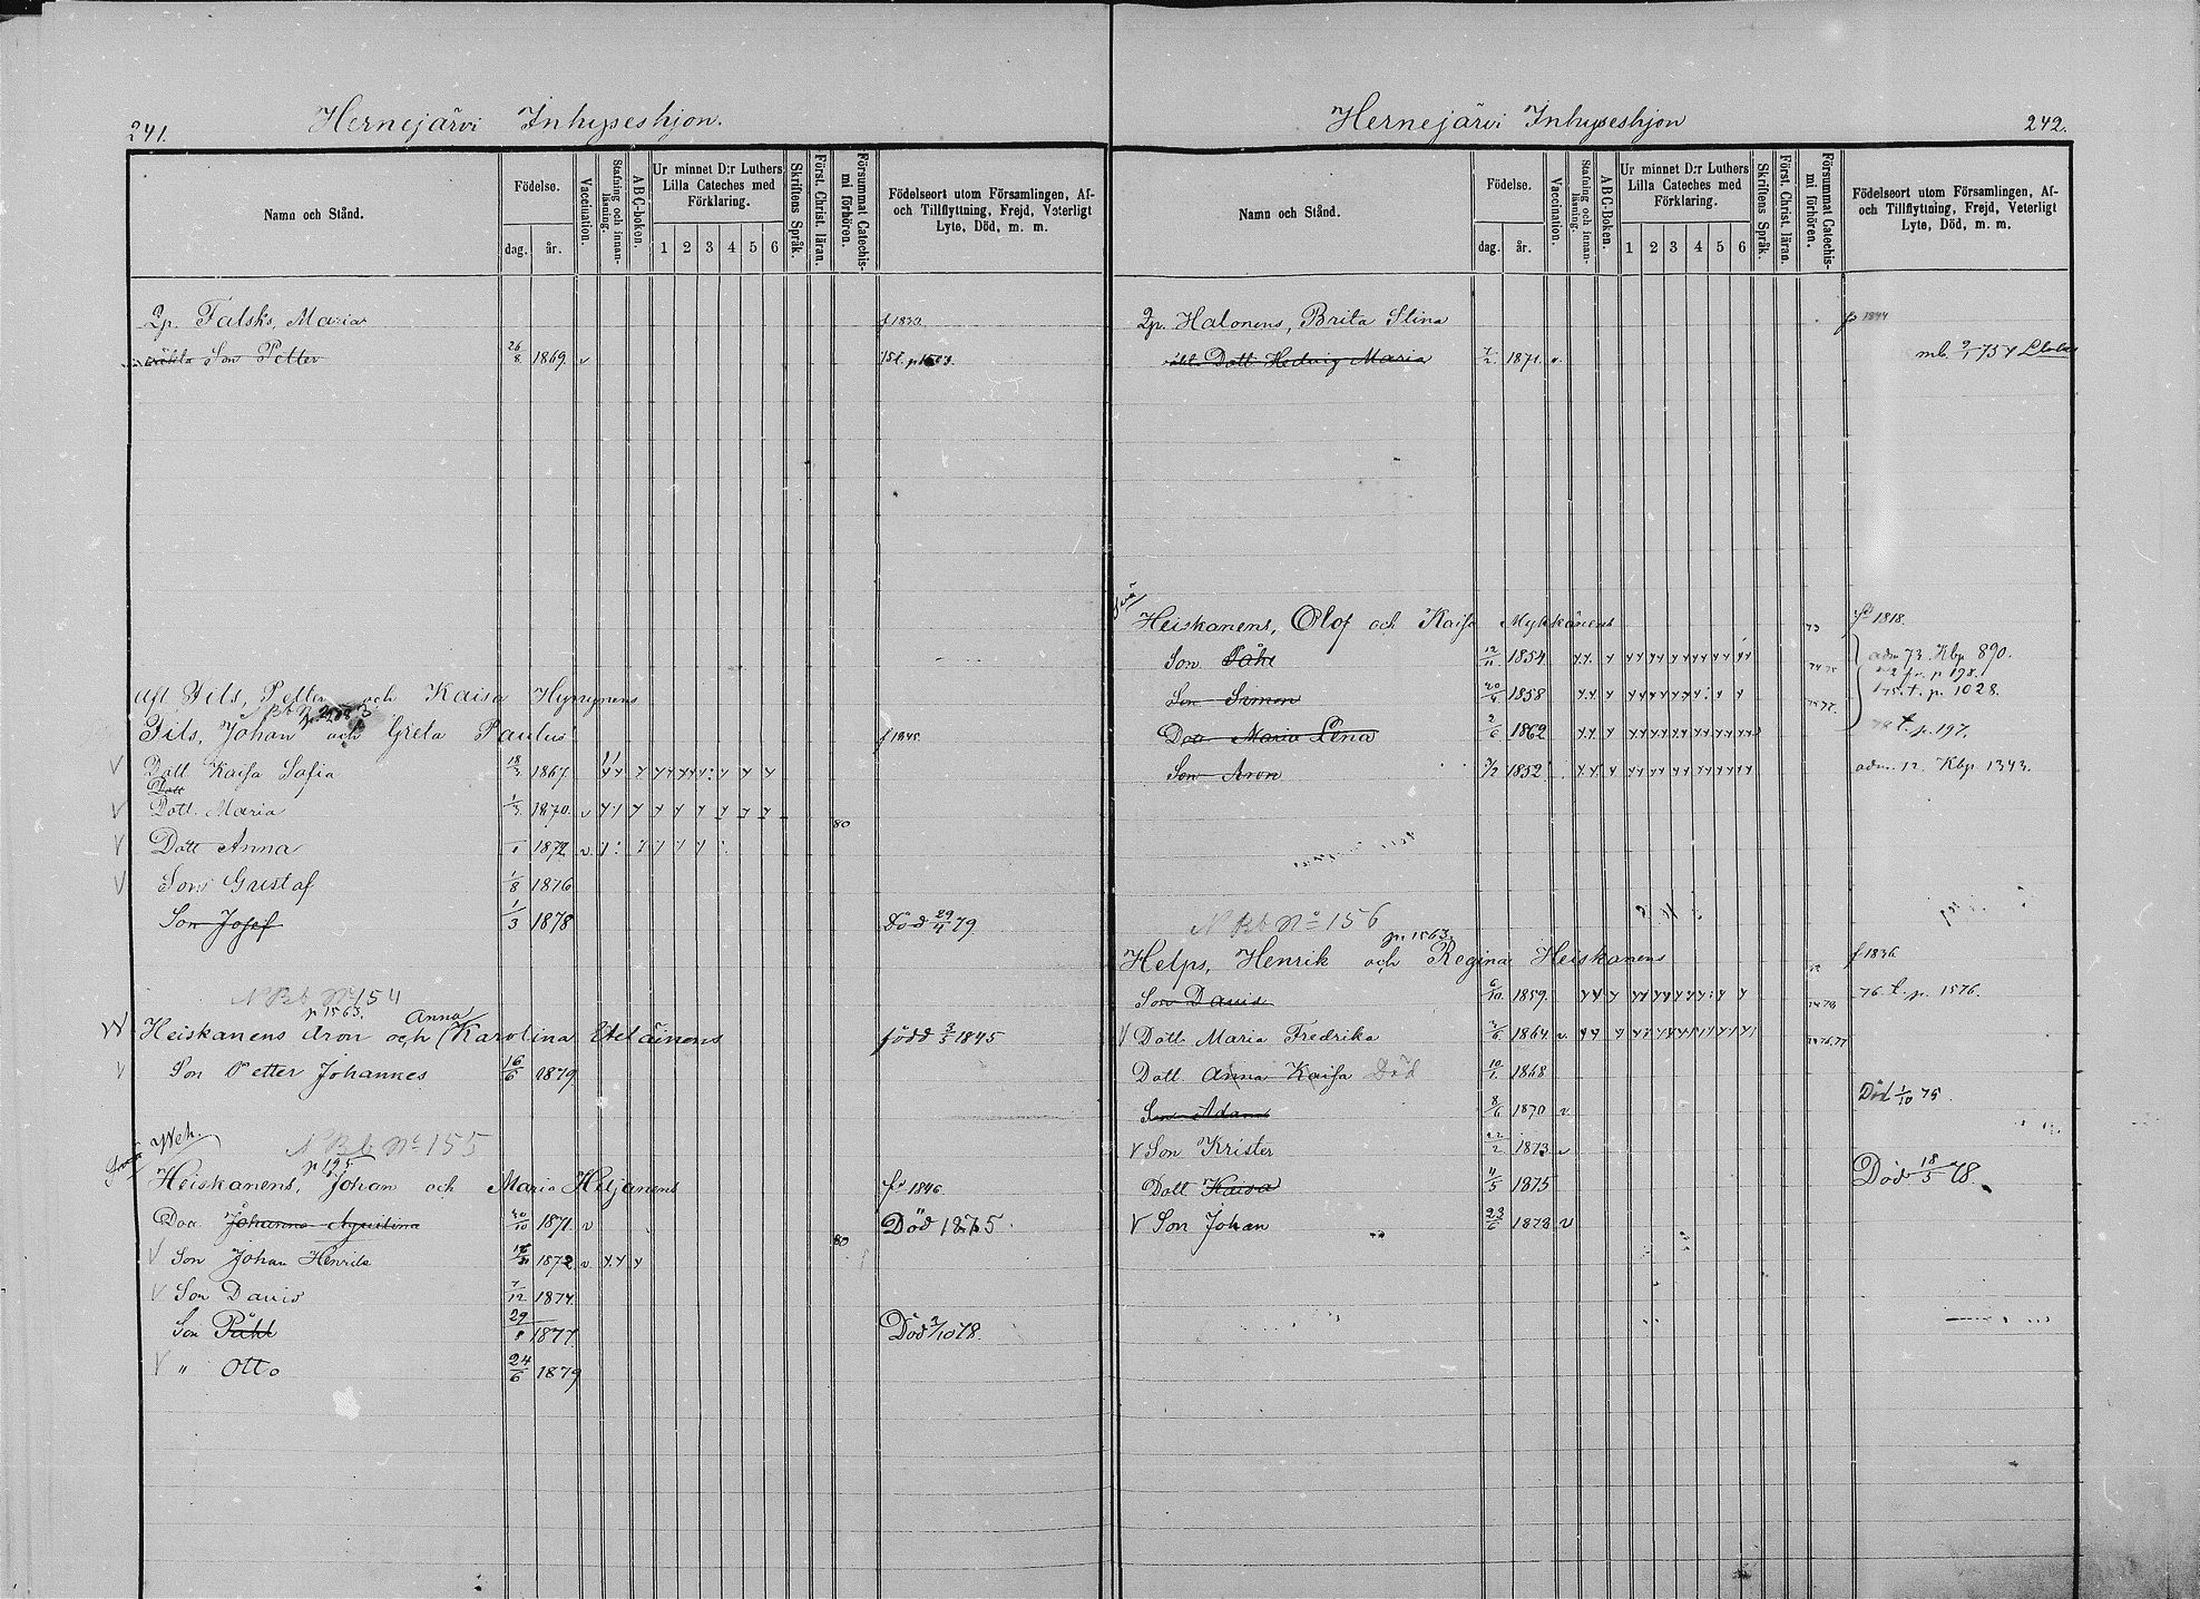 241.
Hernejärvi Inhyseshjon.
Namn och Stånd.
Födelse.
dag.
år.
Vaccination.
Stafning och innan-
läsning.
ABC-boken.
Ur minnet D:r Luthers
Lilla Cateches med
Förklaring.
1 2 3 4 5 6
Skriftens Språk.
Först. Christ. läran.
Försummat Catechis-
mi förhören.
Födelseort utom Församlingen, Af-
och Tillflyttning, Frejd, Veterligt
Lyte, Död, m. m.
Qp. Falsks, Maria
Son Petter 26/8 1869 v
Afl. Fils, Petter och Kaisa Hyrynens
Fils, Johan och Greta Paulus f 1845
Dott Kaisa Sofia 18/3 1867
Dott
Dott. Maria 1/3 1870 v 80
Dott Anna 1872 v
Son Gustaf 1/8 1876
Son Josef 1/3 1878 Död 29/4 79
N Bb No 154
p 1563. Anna
Heiskanens Aron och Karolina Eteläinens född 1845
V Son Petter Johannes 16/6 1879
N Bb No 155
p 195
Heiskanens, Johan och Maria Heljanens fd 1846
Johanna 20/10 1871 v Död 1875
80
V Son Johan Henrik 1872 v
V Son Davis 7/12 1874
Son Påhl 29/8 1877 Död 3/10 78.
V " Otto 24/6 1879
Hernejärvi Inhyseshjon
242.
Namn och Stånd.
Födelse.
dag.
år.
Vaccination.
Stafning och innan-
läsning.
ABC-Boken.
Ur minnet D:r Luthers
Lilla Cateches med
Förklaring.
1 2 3 4 5 6
Skriftens Språk.
Först. Christ. läran.
Försummat Catechis-
mi förhören.
Födelseort utom Församlingen, Af-
och Tillflyttning, Frejd, Veterligt
Lyte, Död, m. m.
Qp. Halonens, Brita Stina 1844
Dott Hedvig Maria 7/2 1871 v.
Heiskanens, Olof och Kaisa Mykkänens 73 fd 1818.
Son Påhl 12/11 1854 adm 73. Kbp 890.
Son Simon 20/4 1858 75. t. p. 1028.
Dott Maria Lena 2/6 1862 t. p. 197.
Son Aron 3/2 1852 adm. 72. Kbp 1343.
N Bb No 156
p. 1563.
Helps, Henrik och Regina Heiskanens f 1836
Son Davis 6/10 1859 76. t. p. 1576.
V Dott Maria Fredrika 1864 v.
Dott Anna Kaisa Död 10/1 1868
Son Adam 8/6 1870 v Död 1/10 75.
V Son Krister 22/2 1873 v
Dott Kaisa 11/5 1875 Död 18/5 78.
V Son Johan 23/6 1878 v